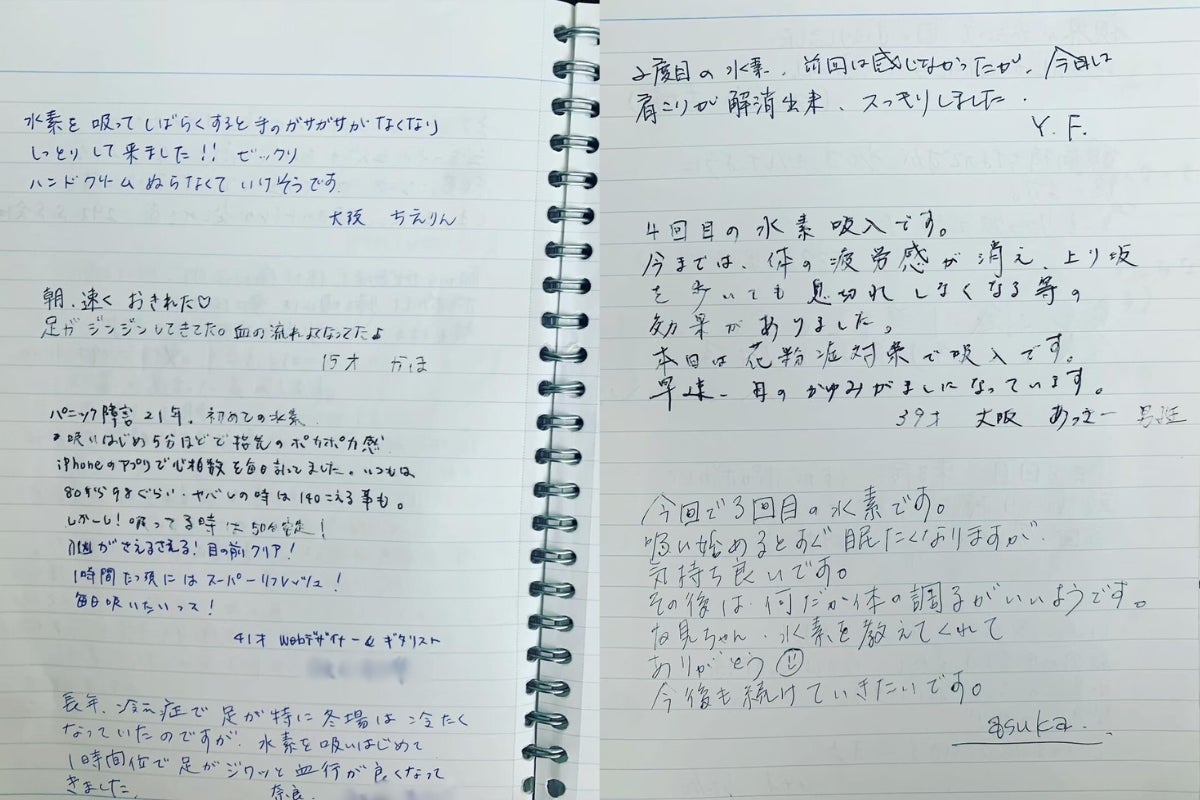 水素を吸ってしばらくすると手のガサガサがなくなり
しっとりして来ました!! ビックリ
ハンドクリームぬらなくていけそうです.
大阪 ちえりん
朝、速くおきれた♡
足がジンジンしてきてた。血の流れよくなってた♪
15才 かほ
パニック障害21年、初めての水素
吸いはじめ5分ほどで指先のポカポカ感
iPhoneのアプリで心拍数を毎日計ってました。いつもは
80から98ぐらい・ヤバしの時は140こえる事も。
しかーし!吸ってる時は50分安定!
がさえるさえる!目の前クリア!
1時間たつ頃にはスーパーリフレッシュ!
毎日吸いたいっス!
41才 Webデザイナー& ギタリスト
長年、冷え症で足が特に冬場は冷たく
なっていたのですが、水素を吸いはじめて
1時間位で足がジワッと血行が良くなって
きました. 奈良.
2度目の水素、前回は感じなかったが、今日は
肩こりが解消出来、スッキリしました.
Y. F.
4回目の水素吸入です。
今までは、体の疲労感が消え、上り坂
を歩いても息切れしなくなる等の
効果がありました。
本日は花粉症対策で吸入です。
早速、目のかゆみがましになっています。
39才 大阪 あっさー 男性
今回で3回目の水素です。
吸い始めるとすぐ眠たくなりますが、
気持ち良いです。
その後は、何だか体の調子がいいようです。
な見ちゃん、水素を教えてくれて
ありがとう☺
今後も続けていきたいです。
asuka.